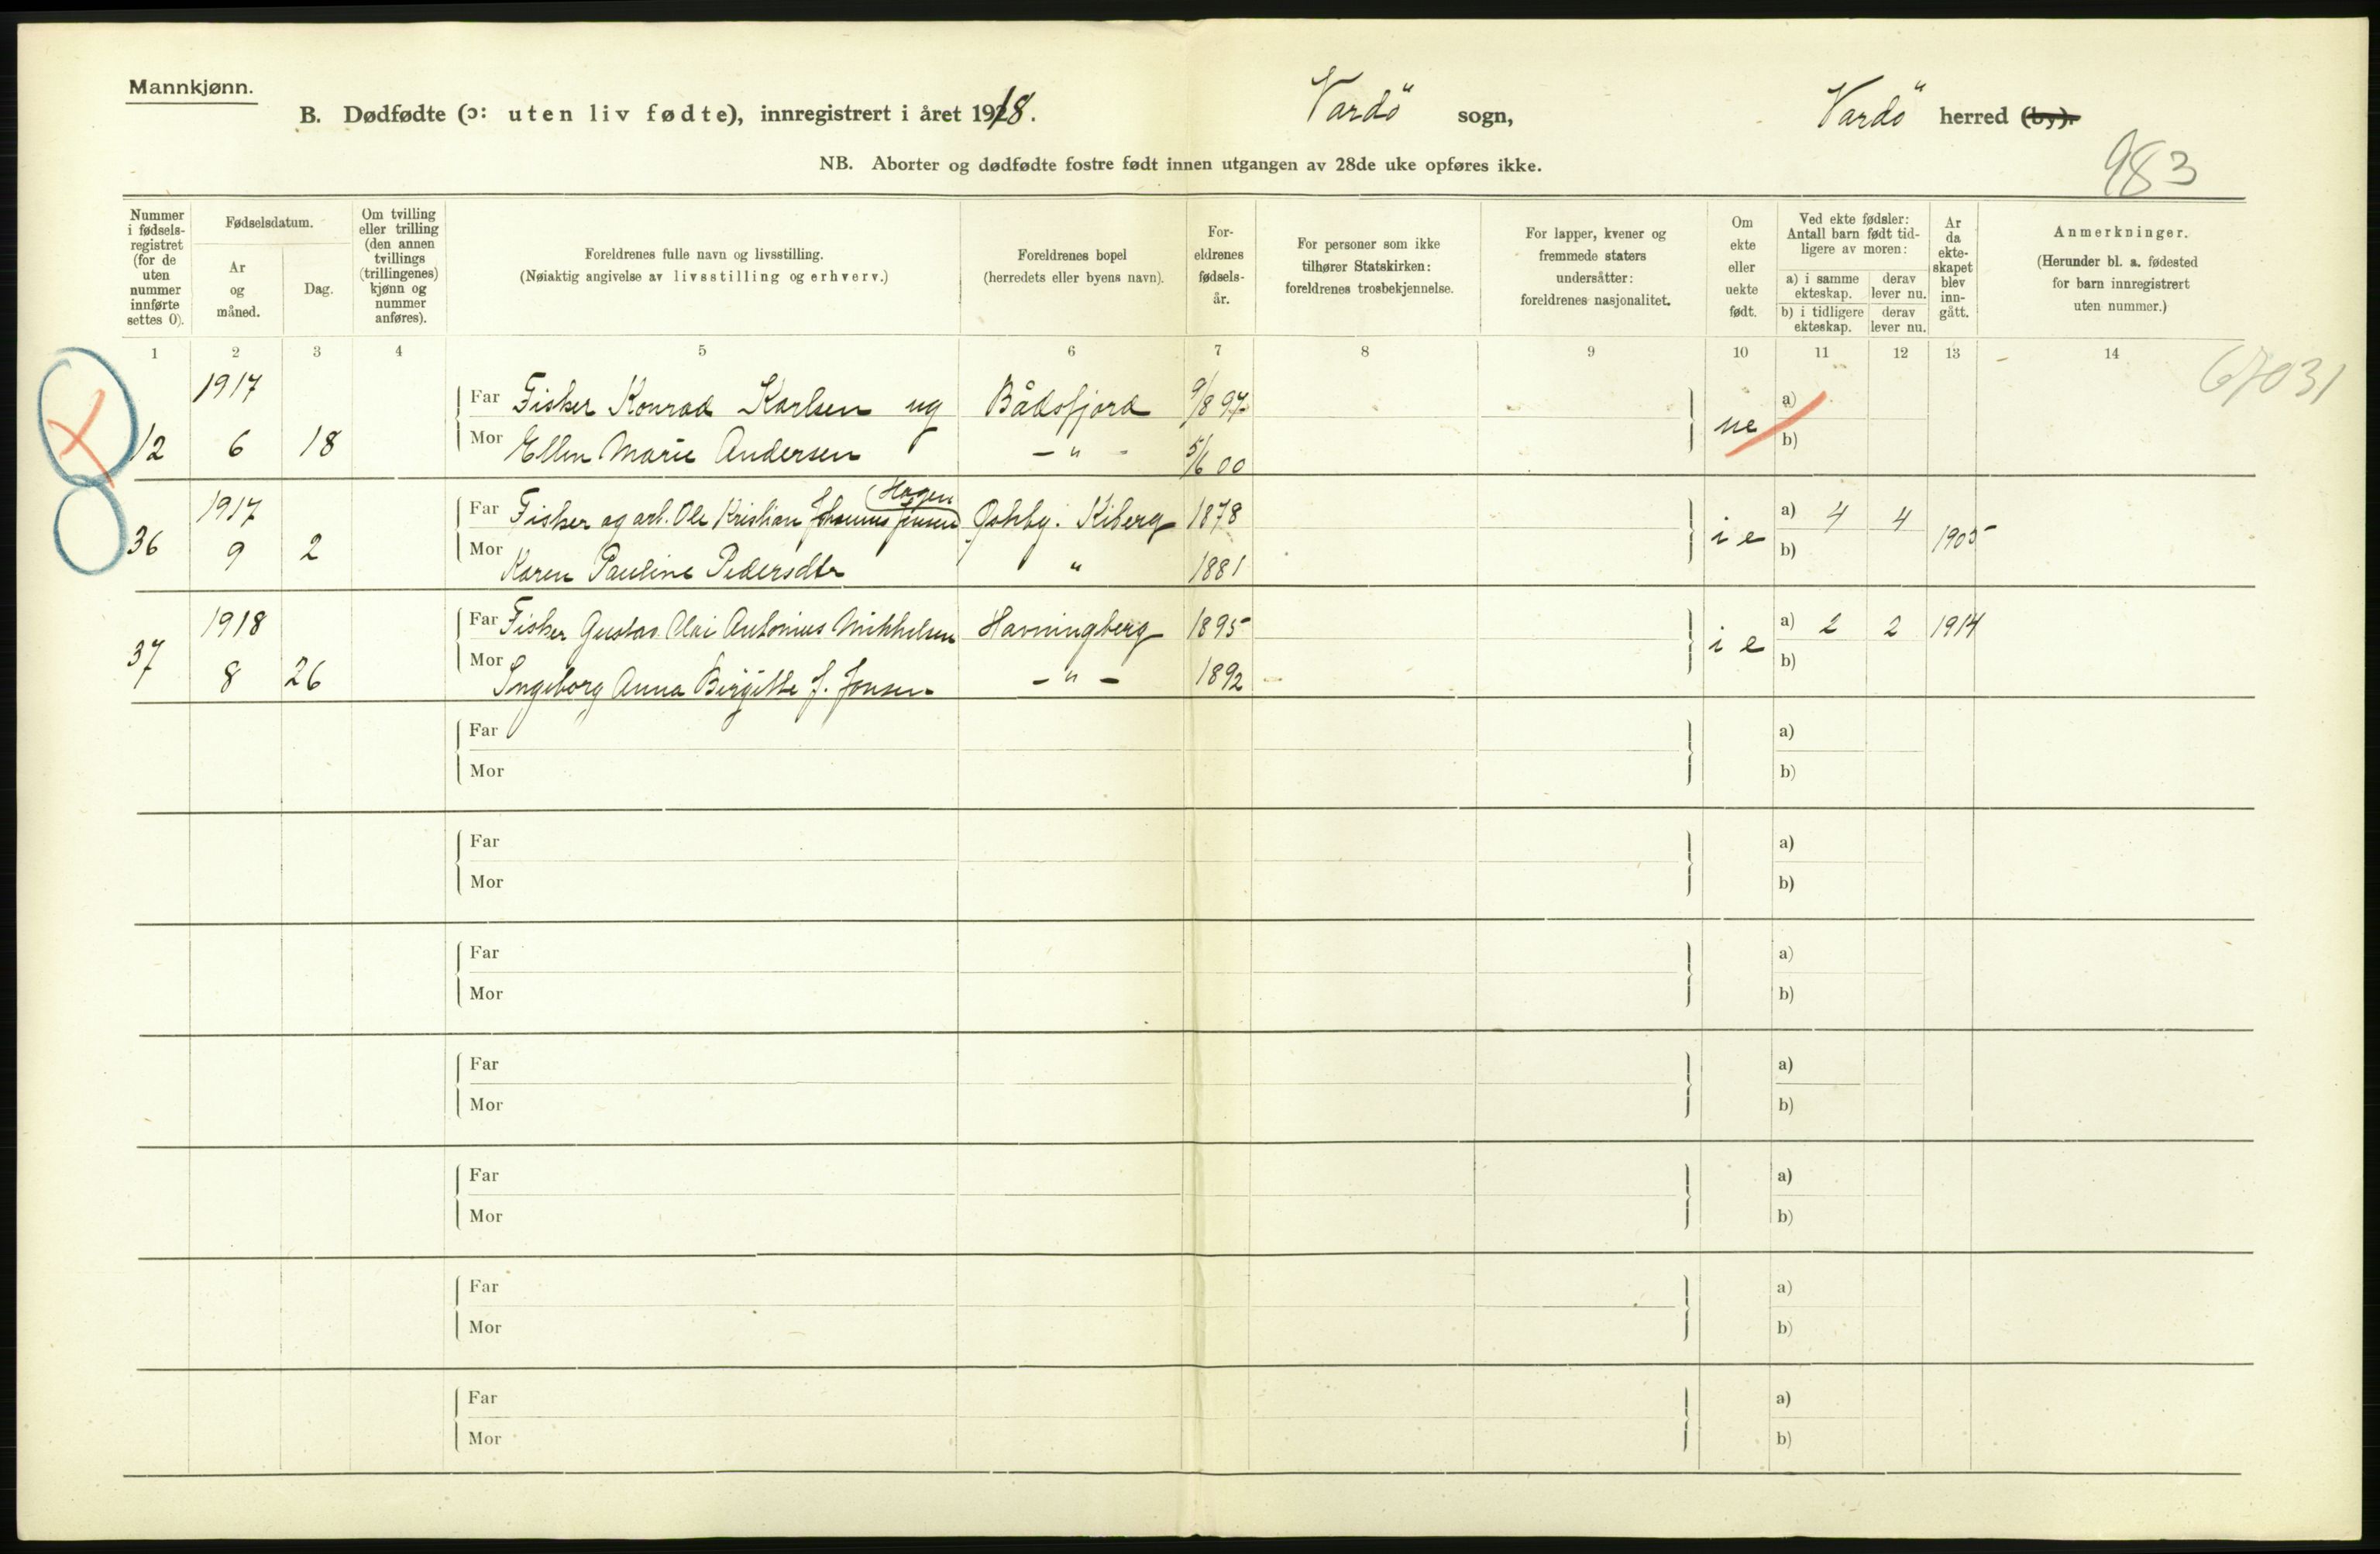 Mannkjønn.
B. Dødfødte (ɔ: uten liv fødte), innregistrert i året 1918. Vardö sogn, Vardö herred (by).
NB. Aborter og dødfødte fostre født innen utgangen av 28de uke opføres ikke.
983
Nummer i fødsels-registret (for de uten nummer innførte settes 0).
Fødselsdatum.
Ar og måned.
Dag.
Om tvilling eller trilling (den annen tvillings (trillingenes) kjønn og nummer anføres).
Foreldrenes fulle navn og livsstilling.
(Nøiaktig angivelse av livsstilling og erhverv.)
Foreldrenes bopel
(herredets eller byens navn).
For-eldrenes fødsels-år.
For personer som ikke tilhører Statskirken: foreldrenes trosbekjennelse.
For lapper, kvener og fremmede staters undersåtter: foreldrenes nasjonalitet.
Om ekte eller uekte født.
Ved ekte fødsler: Antall barn født tid-ligere av moren:
a) i samme ekteskap. derav lever nu.
b) i tidligere ekteskap. derav lever nu.
Ar da ekte-skapet blev inn-gått.
Anmerkninger.
(Herunder bl. a. fødested for barn innregistrert uten nummer.)
1 2 3 4 5 6 7 8 9 10 11 12 13 14
67031
1917 Far Fisker Konrad Karlsen ug Bådsfjord 9/8 97 a)
12 6 18 Mor Ellen Marie Andersen - " - 5/6 00 ue b)
Hagen
1917 Far Fisker og arb. Ole Kristian Johannes Jensen Kiberg 1878 a) 4 4
36 9 2 Mor Karen Pauline Pedersdtr " 1881 i e b) 1905
1918 Far Fisker Gustav Olai Antonius Mikkelsen Havningberg 1895 a) 2 2 1914
37 8 26 Mor Ingeborg Anna Birgitte J. Jonsen - " - 1892 i e b)
Far a)
Mor b)
Far a)
Mor b)
Far a)
Mor b)
Far a)
Mor b)
Far a)
Mor b)
Far a)
Mor b)
Far a)
Mor b)